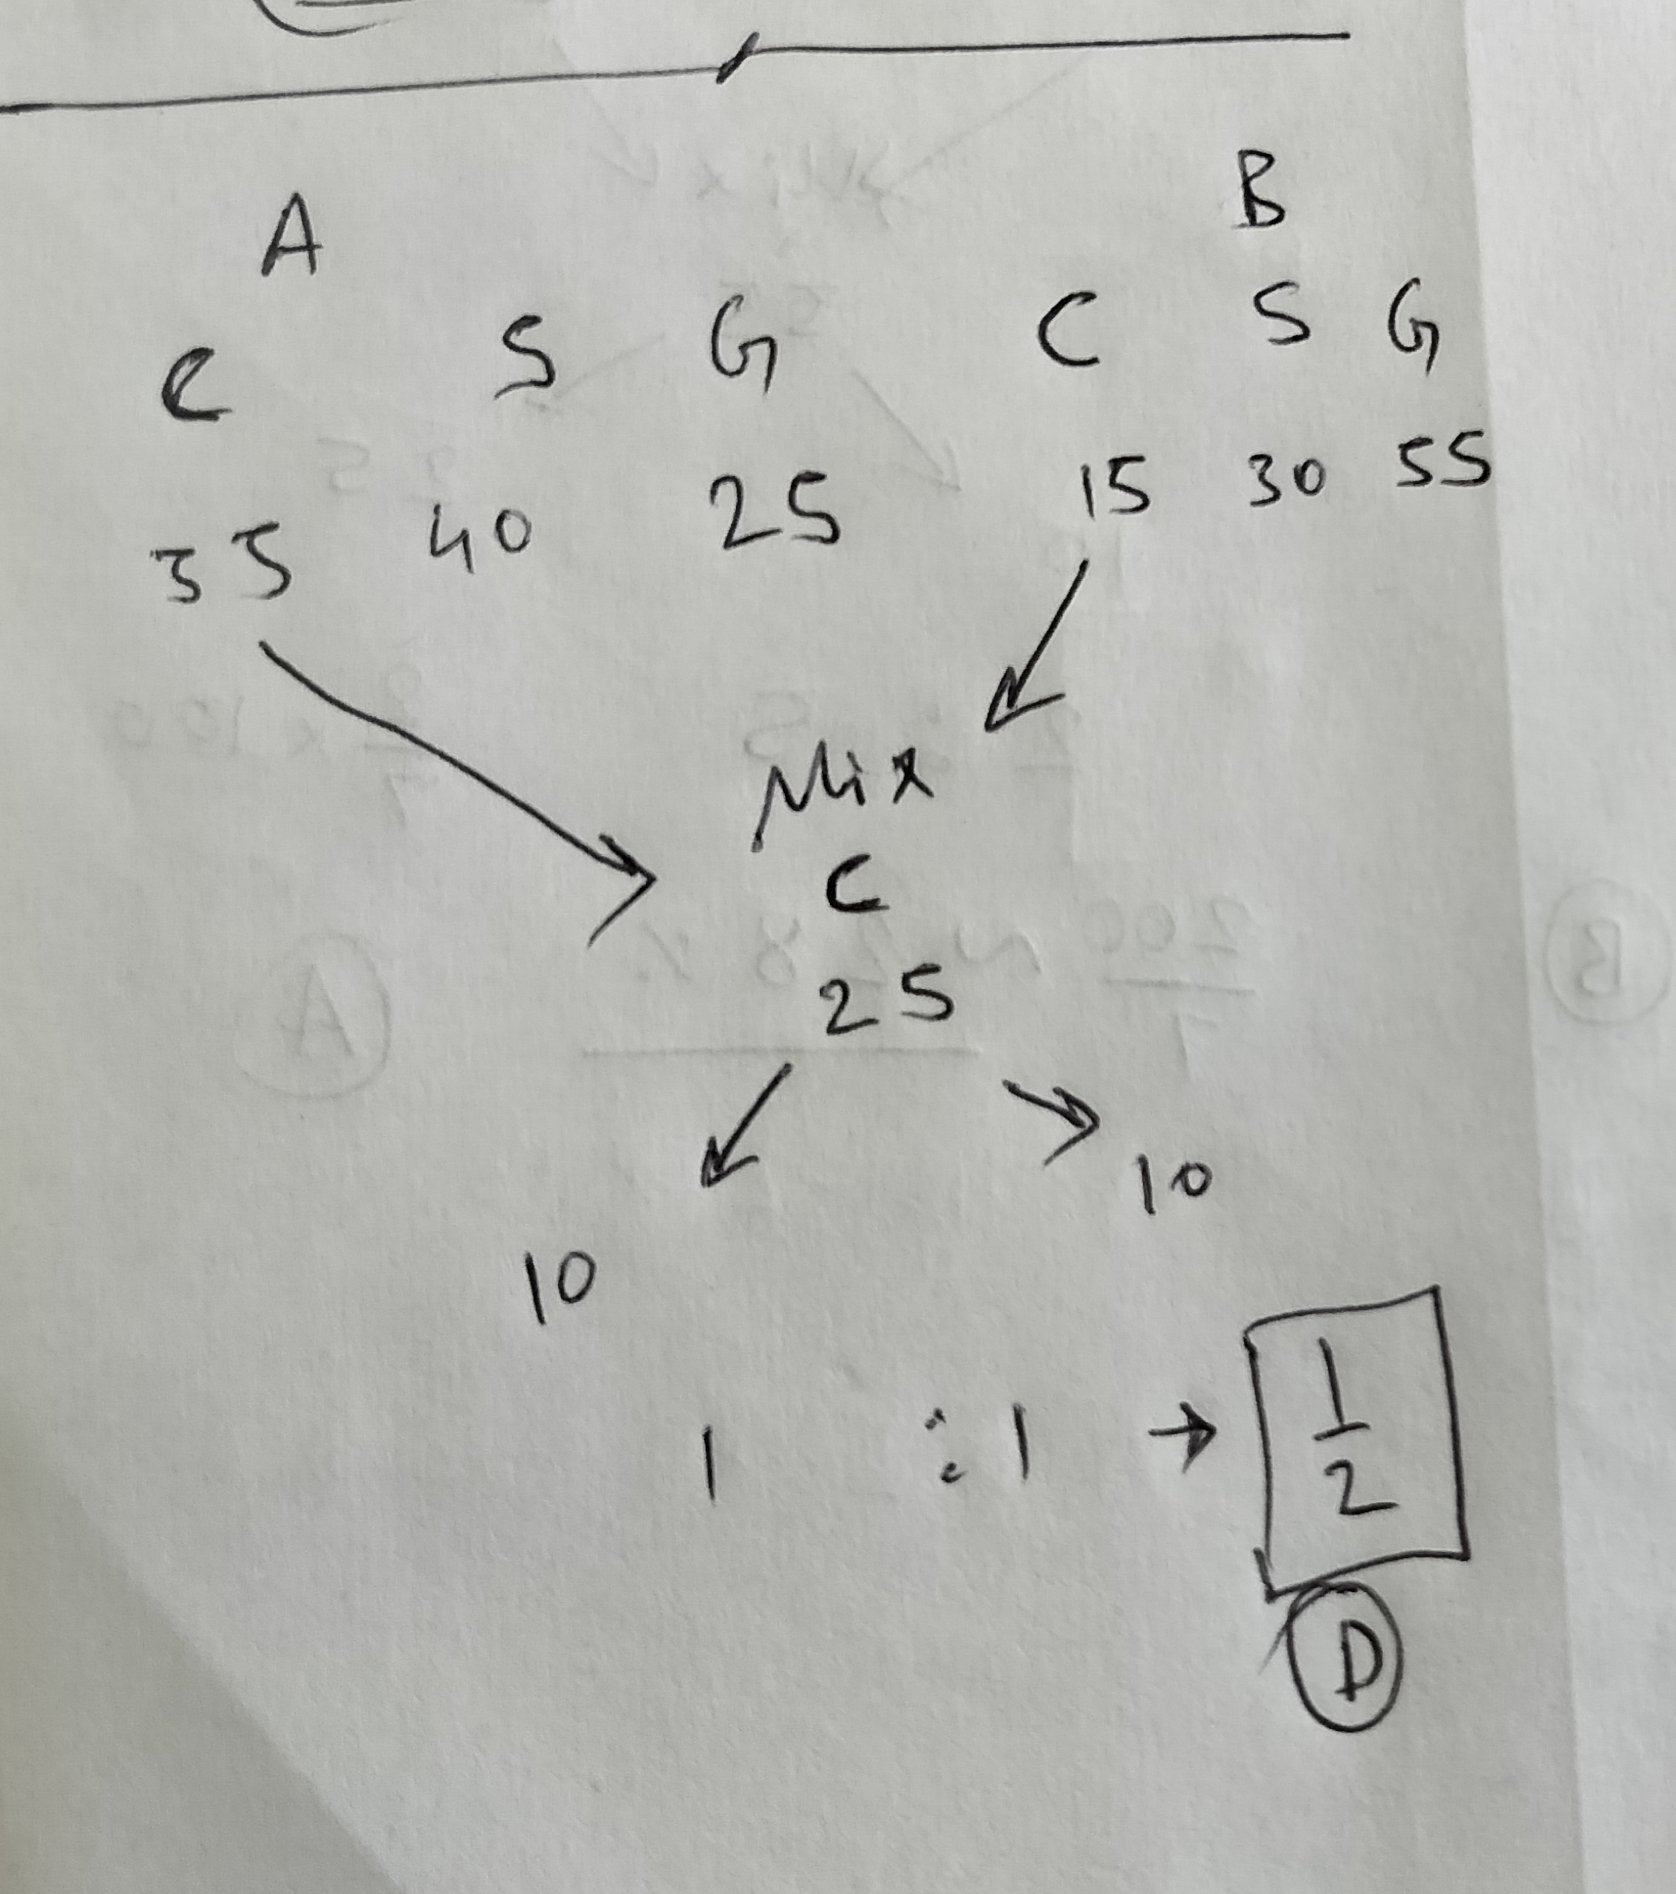 A B
C S G C S G
35 40 25 15 30 55
Mix
C
25
10 10
1 : 1 → 1/2
D